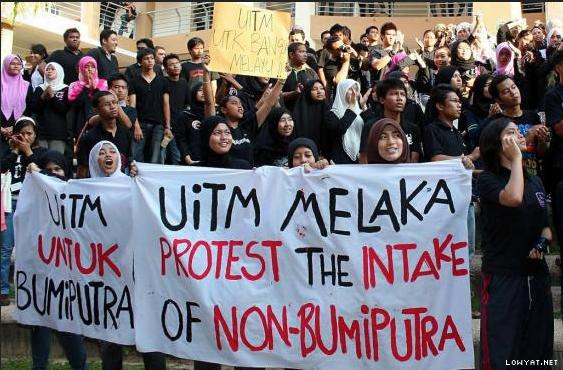 UiTM
UTK BANGSA
MELAYU
UiTM
UNTUK
BUMiPUTRA
UiTM MELAKA
PROTEST THE INTAKE
OF NON-BUMiPUTRA
LOWYAT.NET